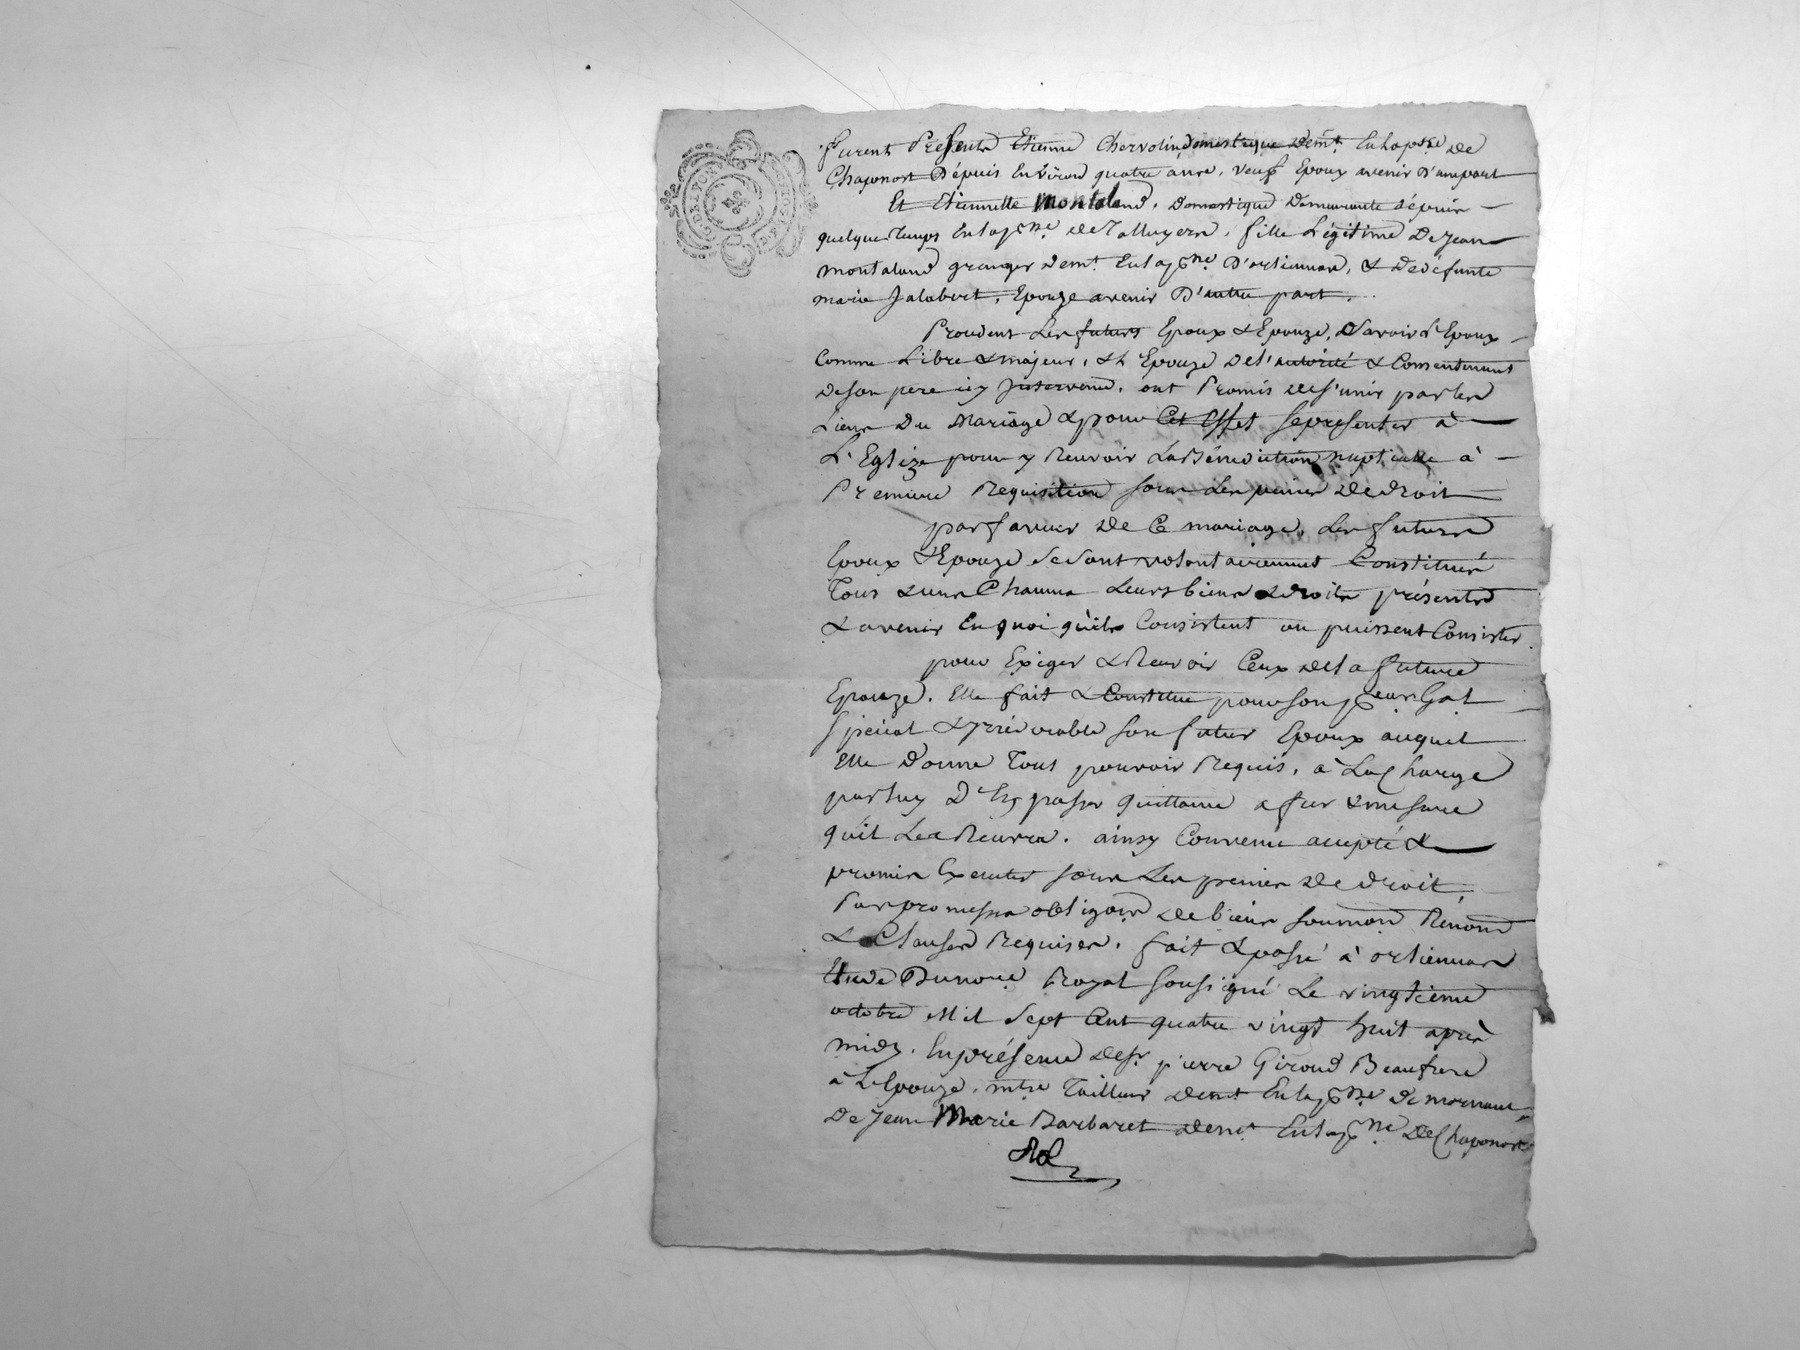 furent Présents Etienne Chervolin domestique demt. En la psse de
Chaponost Dépuis Environ quatre ans, veuf Epoux avenir D'unepart
Et Etiennette Montaland, Domestique Demeurante dépuis
quelque Temps En la psse. de Talluyers, fille Légitime De Jean
montaland granger demt. En la psse. D'orliennas, & de défunte
marie Jalabert, Epouze avenir D'autre part.
Proudent Les futurs Epoux & Epouze, Savoir L'Epoux
Comme Libre & majeur, & L'Epouze De l'autorité & Consentement
de son pere icy Intervenu, ont Promis de s'unir par les
Liens Du Mariage & pour Cet Effet se présenter à
L'Eglize pour y Recevoir La Bénédiction nuptialle à
Premiere Requisition sous Les peines De droit
par faveur de Ce mariage, Les futurs
Epoux & Epouze se sont volontairement Constitués
Tous & uns Chacuns Leurs biens & droits présents
& avenir En quoi qu'ils Consistent ou puissent Consister.
pour Exiger & Recevoir Ceux de la future
Epouze, Elle fait & Constitue pour son pceur. Gal.
Spécial & Irrévocable son futur Epoux auquel
Elle donne Tout pouvoir Requis, à La Charge
par luy D'En passer quittance a fur & mesure
qu'il Les Recevra. ainsy Convenu accepté &
promis Executer sous Les peines de droit
Par promesses obligons. de biens soumon. Rénond.
& Clauses Requises. fait & passé à orliennas
Etude Du noire. Royal soussigné Le vingtieme
octobre Mil Sept Cent quatre vingt huit après
midy. En présence de sr. pierre Giroud Beaufrere
à L'Epouze, mtre Tailleur demt En la psse. de mornant,
De Jean Marie Barbaret demt. En la psse. de Chaponost